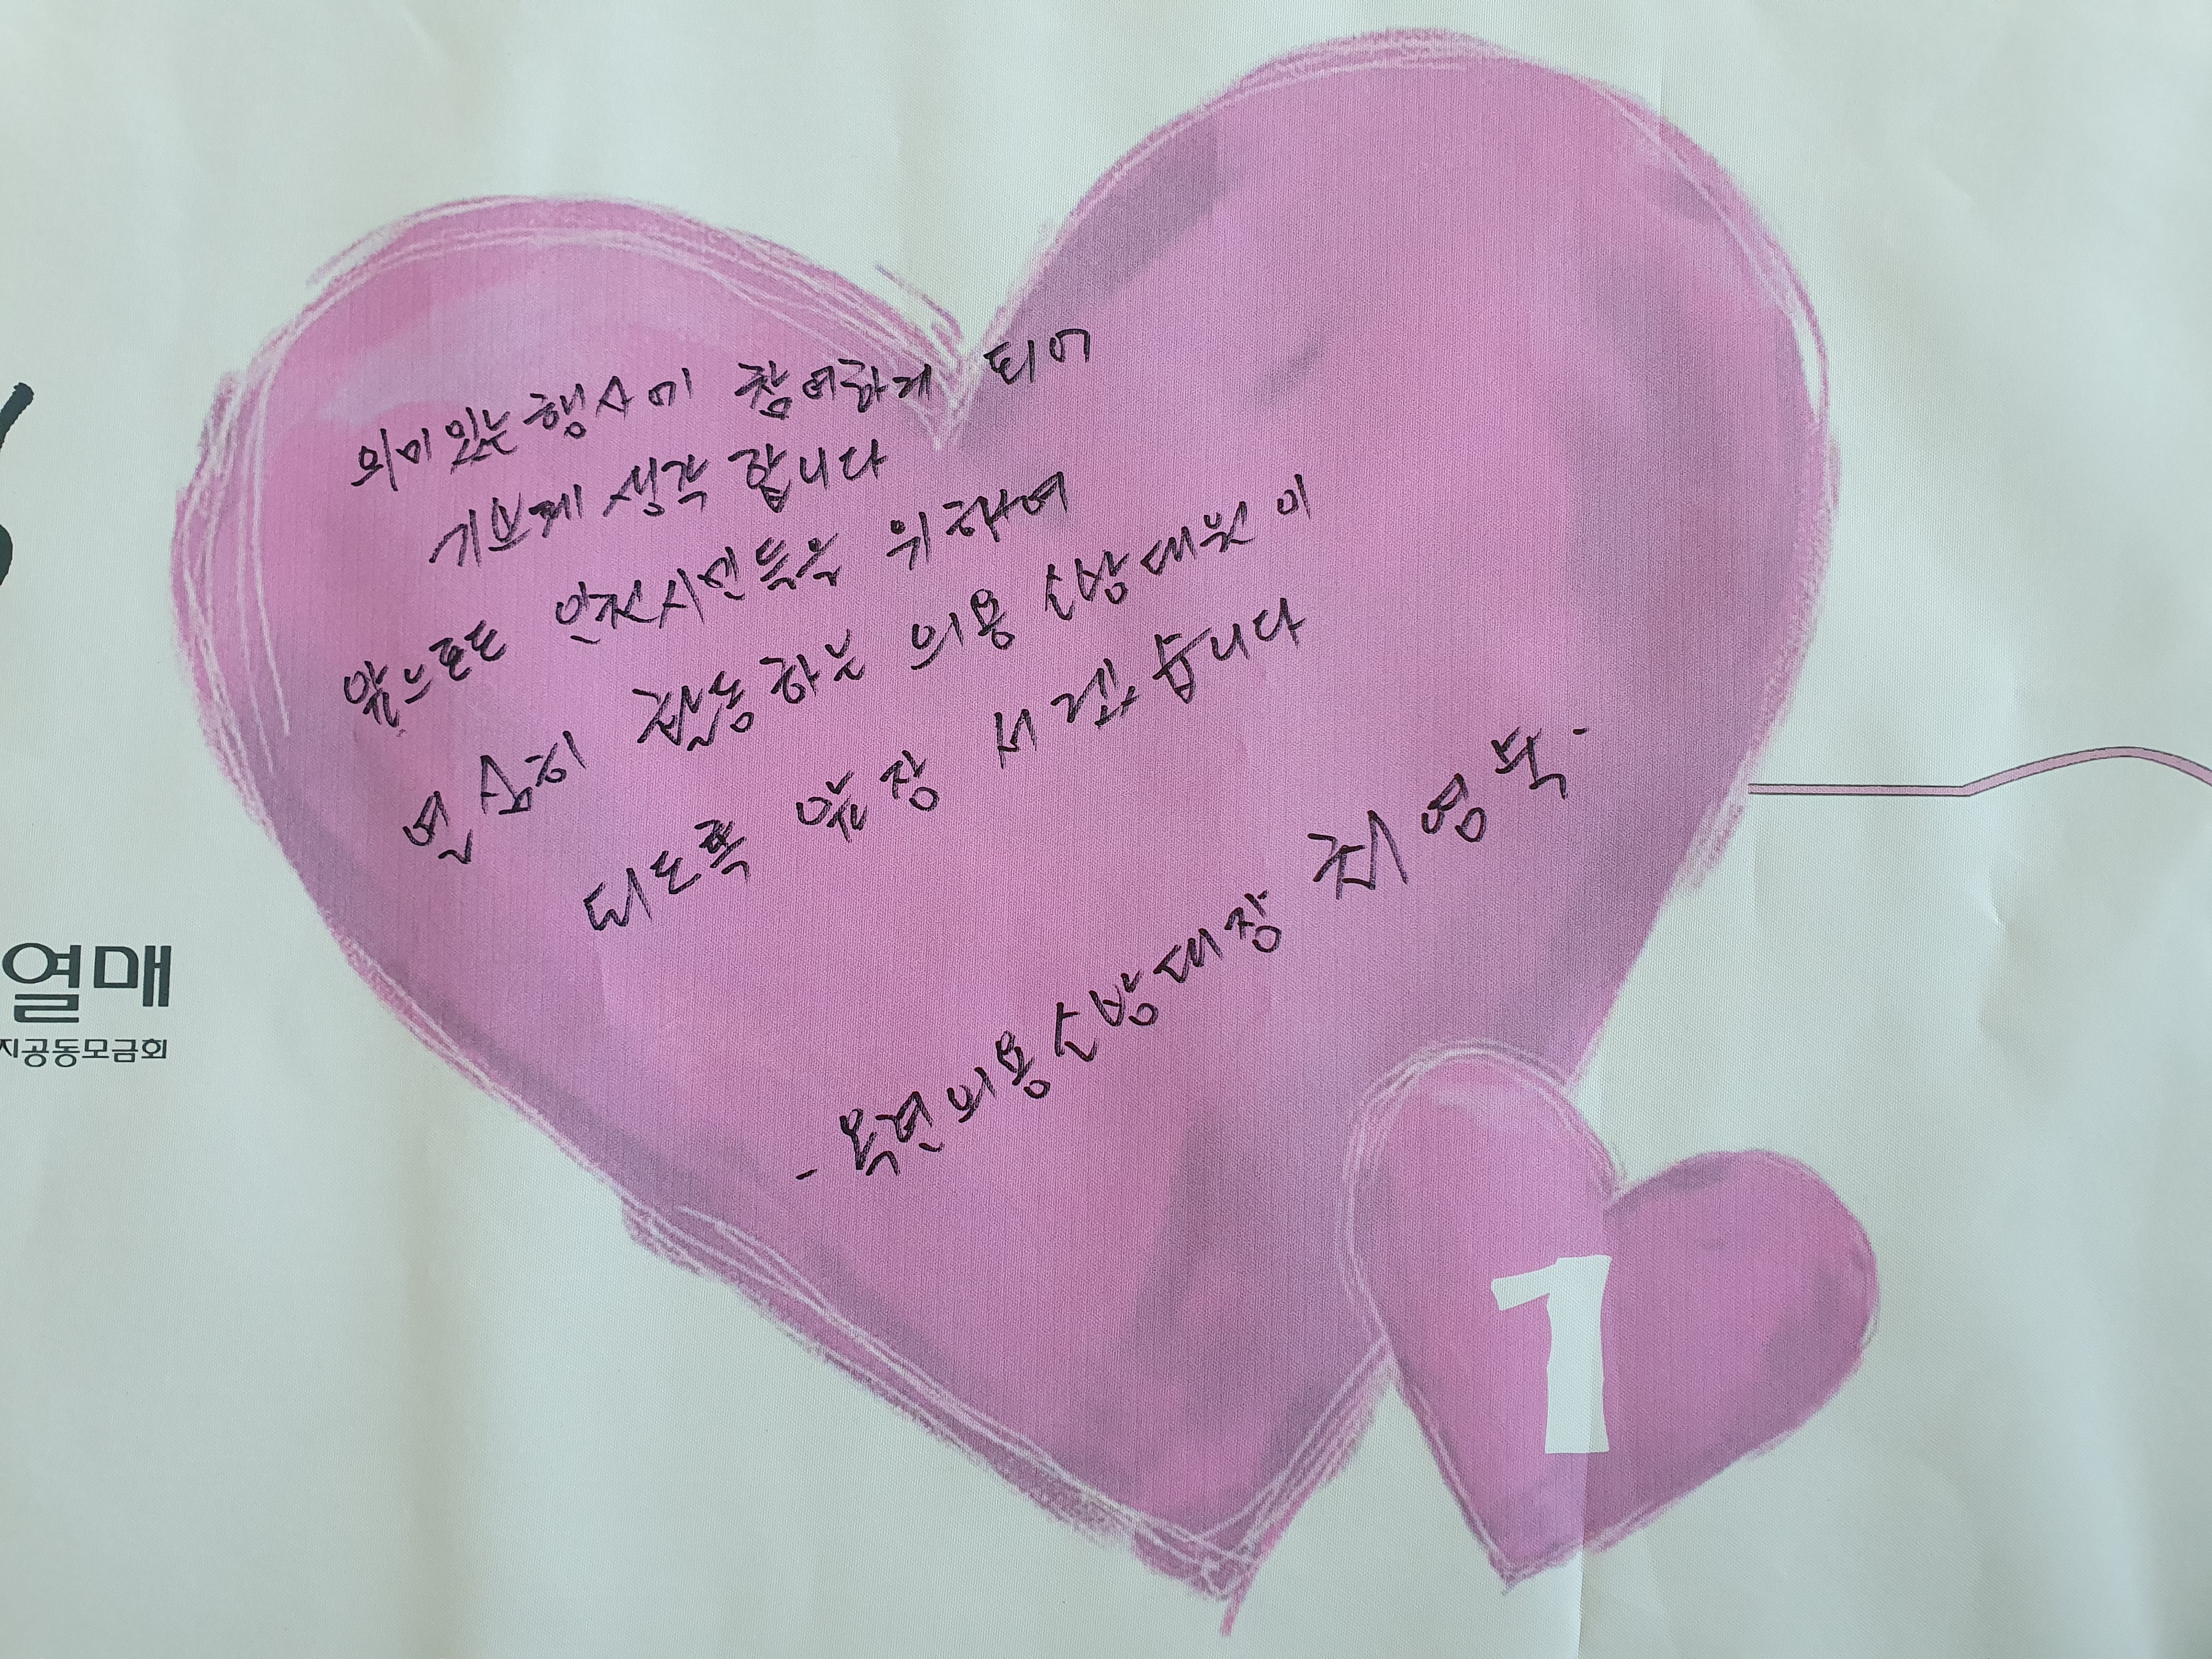 의미있는행사에 참여하게 되어
기쁘게 생각 합니다
앞으로도 안전시민들을 위하여
열심히 활동하는 의용소방대원이
되도록 앞장 서겠습니다
- 옥련의용소방대장 최영욱.
열매
지공동모금회
1